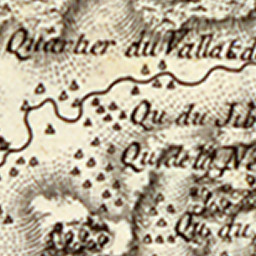 Quartier du Valla
Qu du Jib
Qu de la No
Qu. du